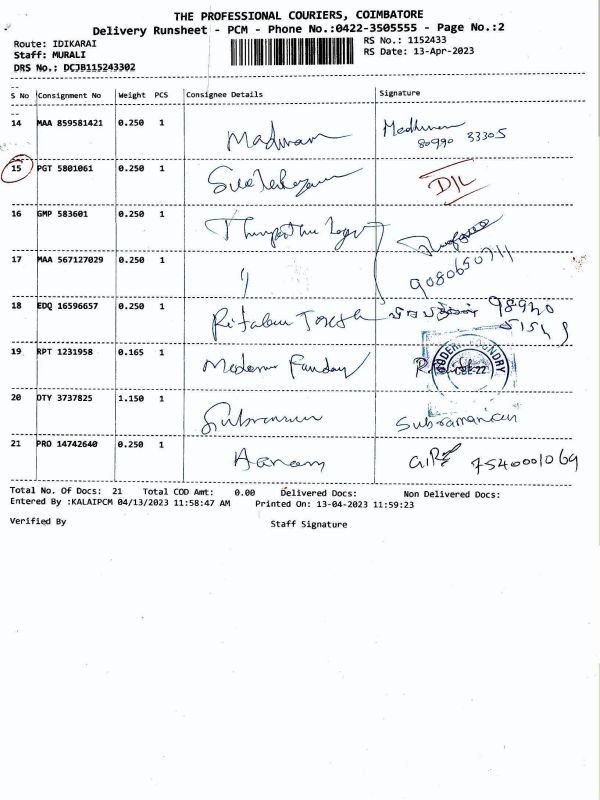 THE PROFESSIONAL COURIERS, COIMBATORE
Delivery Runsheet - PCM - Phone No.:0422-3505555 - Page No.:2
Route: IDIKARAI
RS No.: 1152433
Staff: MURALI
RS Date: 13-Apr-2023
DRS No.: DCJB115243302
S No Consignment No Weight PCS Consignee Details Signature
14 MAA 859581421 0.250 1
80990 33305
15 PGT 5801061 0.250 1 D/L
16 GMP 583601 0.250 1
17 MAA 567127029 0.250 1 "
9080650711
18 EDQ 16596657 0.250 1
19 RPT 1231958 0.165 1
20 DTY 3737825 1.150 1 Subramanian
21 PRO 14742640 0.250 1 7540001069
Total No. Of Docs: 21 Total COD Amt: 0.00 Delivered Docs: Non Delivered Docs:
Entered By :KALAIPCM 04/13/2023 11:58:47 AM Printed On: 13-04-2023 11:59:23
Verified By Staff Signature